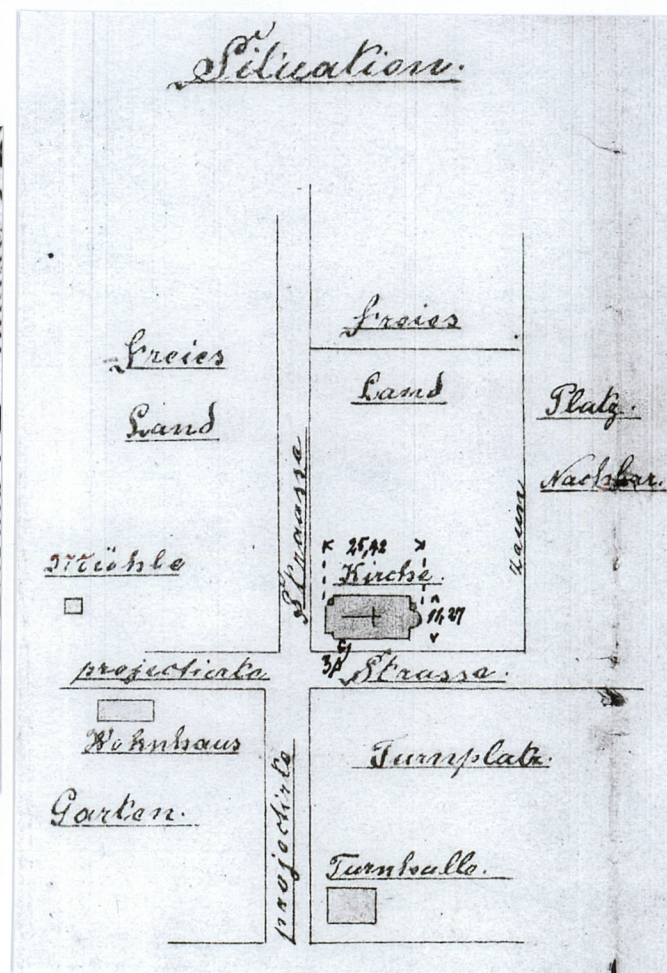 Situation.
Freies
Land
Freies
Land
Platz.
Nachbar.
Straasse
Zaun
Mühle
25,42
Kirche.
11,27
projectirte
Strasse.
Wohnhaus
Garten.
projectirte
Turnplatz.
Turnhalle.